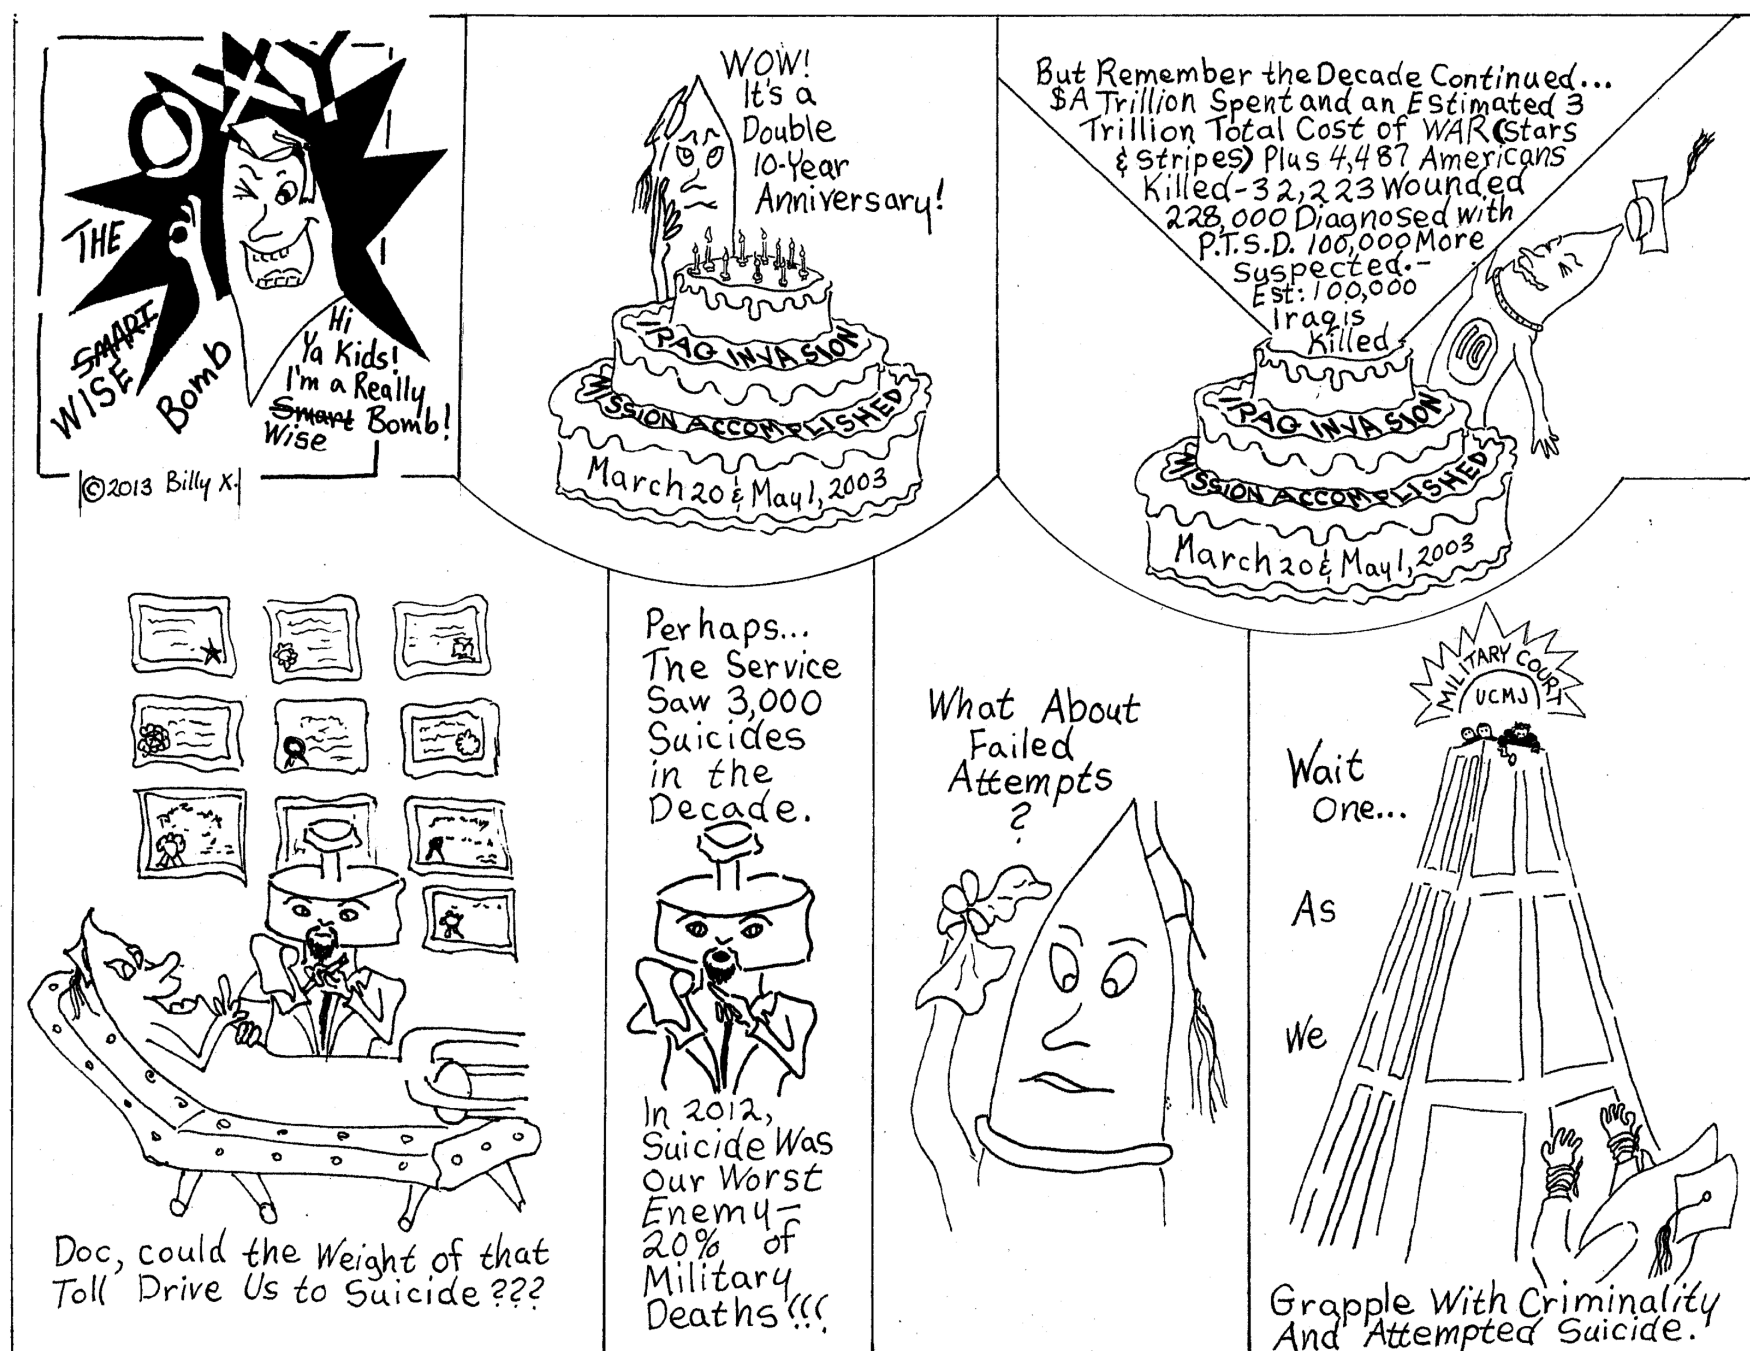 OXY
THE
SMART
WISE
Bomb
Hi
Ya Kids!
I'm a Really
Smart Bomb!
Wise
©2013 Billy X.
WOW!
It's a
Double
10-Year
Anniversary!
IRAQ INVASION
MISSION ACCOMPLISHED
March 20 & May 1, 2003
But Remember the Decade Continued...
$A Trillion Spent and an Estimated 3
Trillion Total Cost of WAR (Stars
& Stripes) Plus 4,487 Americans
Killed-32,223 Wounded
228,000 Diagnosed with
P.T.S.D. 100,000 More
Suspected.-
Est: 100,000
Iraqis
Killed
IRAQ INVASION
MISSION ACCOMPLISHED
March 20 & May 1, 2003
Doc, could the Weight of that
Toll Drive Us to Suicide???
Perhaps...
The Service
Saw 3,000
Suicides
in the
Decade.
In 2012,
Suicide Was
Our Worst
Enemy-
20% of
Military
Deaths!!!
What About
Failed
Attempts
?
MILITARY COURT
UCMJ
Wait
One...
As
We
Grapple With Criminality
And Attempted Suicide.